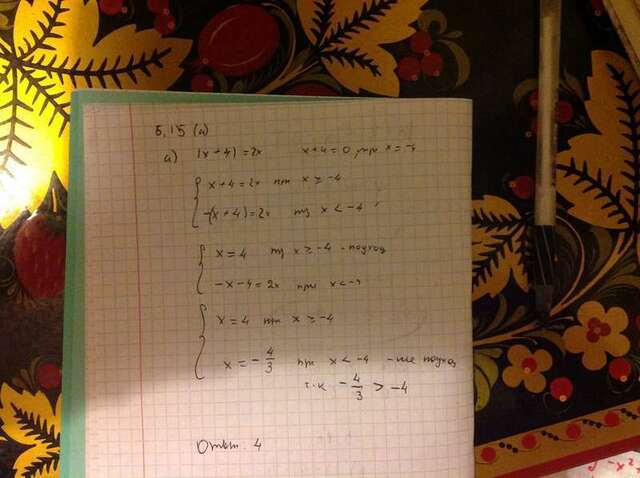 5,15 (а)
а) |x+4|=2x x+4=0, при x=-4
x+4=2x при x≥-4
-(x+4)=2x при x<-4
x=4 при x≥-4 - подход
-x-4=2x при x<-4
x=4 при x≥-4
x=-4/3 при x<-4 - не подход
т.к -4/3 > -4
Ответ: 4
-x²